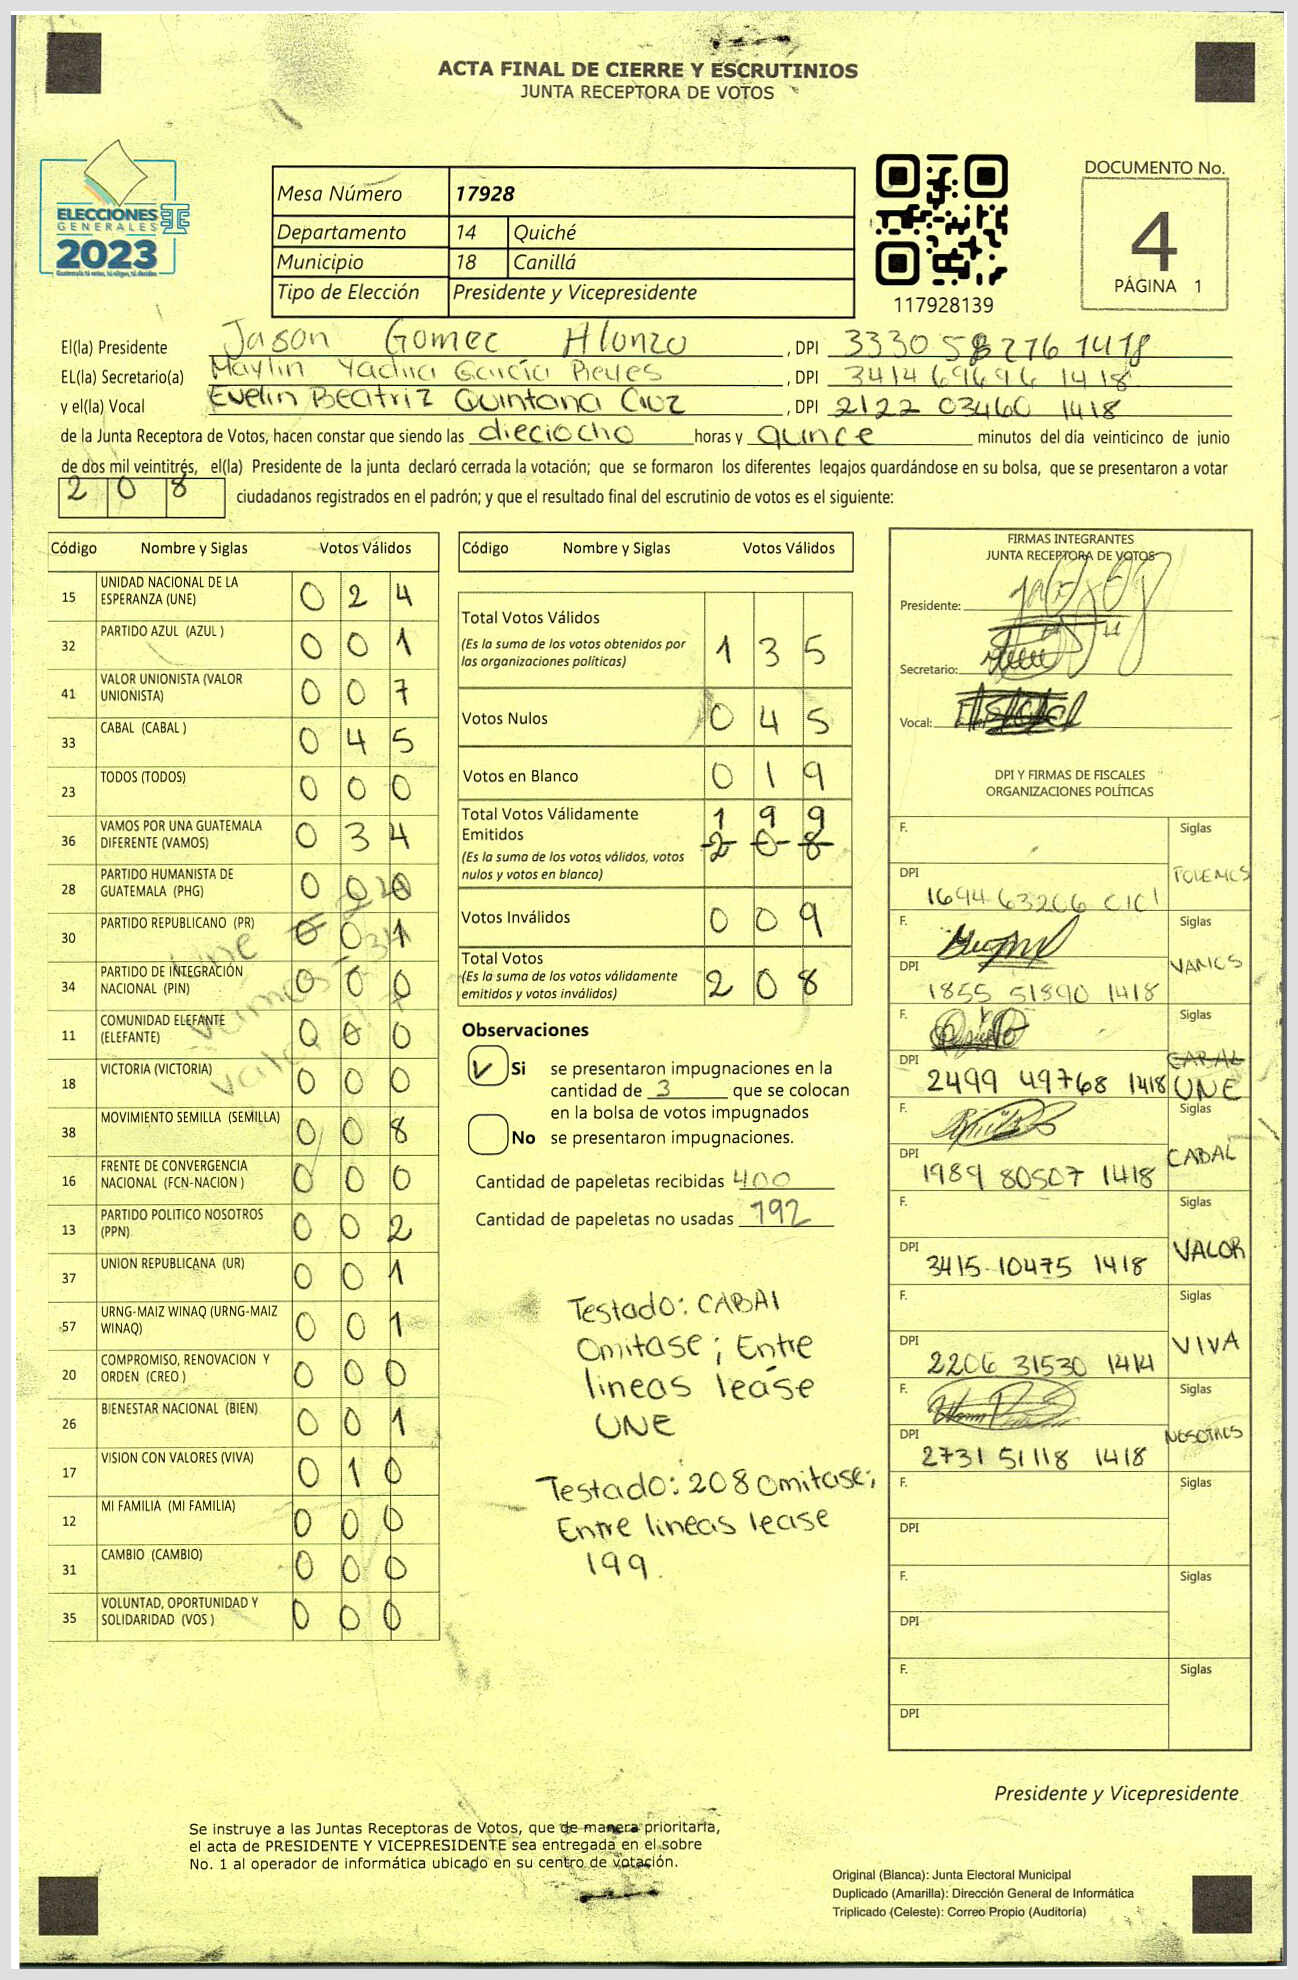 ACTA FINAL DE CIERRE Y ESCRUTINIOS
JUNTA RECEPTORA DE VOTOS
ELECCIONES
GENERALES
2023
Mesa Número 17928
Departamento 14 Quiché
Municipio 18 Canillá
Tipo de Elección Presidente y Vicepresidente
117928139
DOCUMENTO No.
4
PÁGINA 1
El(la) Presidente Jason Gomez Alonzo , DPI
EL(la) Secretario(a) Maylin Yadira García Reyes , DPI 3414 69696 1418
y el(la) Vocal Evelin Beatriz Quintana Cruz , DPI 2122 03460 1418
de la Junta Receptora de Votos, hacen constar que siendo las dieciocho horas y quince minutos del día veinticinco de junio
de dos mil veintitrés, el(la) Presidente de la junta declaró cerrada la votación; que se formaron los diferentes legajos guardándose en su bolsa, que se presentaron a votar
208 ciudadanos registrados en el padrón; y que el resultado final del escrutinio de votos es el siguiente:
Código Nombre y Siglas Votos Válidos
15 UNIDAD NACIONAL DE LA ESPERANZA (UNE) 0 2 4
32 PARTIDO AZUL (AZUL ) 0 0 1
41 VALOR UNIONISTA (VALOR UNIONISTA) 0 0 7
33 CABAL (CABAL ) 0 4 5
23 TODOS (TODOS) 0 0 0
36 VAMOS POR UNA GUATEMALA DIFERENTE (VAMOS) 0 3 4
28 PARTIDO HUMANISTA DE GUATEMALA (PHG) 0 0 0
30 PARTIDO REPUBLICANO (PR) 0 0 1
34 PARTIDO DE INTEGRACIÓN NACIONAL (PIN) 0 0 0
11 COMUNIDAD ELEFANTE (ELEFANTE) 0 0 0
18 VICTORIA (VICTORIA) 0 0 0
38 MOVIMIENTO SEMILLA (SEMILLA) 0 0 8
16 FRENTE DE CONVERGENCIA NACIONAL (FCN-NACION ) 0 0 0
13 PARTIDO POLITICO NOSOTROS (PPN) 0 0 2
37 UNION REPUBLICANA (UR) 0 0 1
57 URNG-MAIZ WINAQ (URNG-MAIZ WINAQ) 0 0 1
20 COMPROMISO, RENOVACION Y ORDEN (CREO ) 0 0 0
26 BIENESTAR NACIONAL (BIEN) 0 0 1
17 VISION CON VALORES (VIVA) 0 1 0
12 MI FAMILIA (MI FAMILIA) 0 0 0
31 CAMBIO (CAMBIO) 0 0 0
35 VOLUNTAD, OPORTUNIDAD Y SOLIDARIDAD (VOS ) 0 0 0
Código Nombre y Siglas Votos Válidos
Total Votos Válidos 1 3 5
(Es la suma de los votos obtenidos por
las organizaciones políticas)
Votos Nulos 0 4 5
Votos en Blanco 0 1 9
Total Votos Válidamente 1 9 9
Emitidos 2 0 8
(Es la suma de los votos válidos, votos
nulos y votos en blanco)
Votos Inválidos 0 0 9
Total Votos 2 0 8
(Es la suma de los votos válidamente
emitidos y votos inválidos)
Observaciones
Si se presentaron impugnaciones en la
cantidad de 3 que se colocan
en la bolsa de votos impugnados
No se presentaron impugnaciones.
Cantidad de papeletas recibidas 400
Cantidad de papeletas no usadas 192
Testado: CABAl
Omitase; Entre
lineas lease
UNE
Testado: 208 omitase;
Entre lineas lease
199.
FIRMAS INTEGRANTES
JUNTA RECEPTORA DE VOTOS
Presidente:
Secretario:
Vocal:
DPI Y FIRMAS DE FISCALES
ORGANIZACIONES POLÍTICAS
F. Siglas
DPI 1694 63206
F. Siglas
VAMOS
DPI 1855 51890 1418
F. Siglas
CABAL
DPI 2499 49768 1418 UNE
F. Siglas
CABAL
DPI 1989 80507 1418
F. Siglas
VALOR
DPI 3415 10475 1418
F. Siglas
VIVA
DPI 2206 31530 1414
F. Siglas
NOSOTROS
DPI 2731 51118 1418
F. Siglas
DPI
F. Siglas
DPI
F. Siglas
DPI
Presidente y Vicepresidente
Se instruye a las Juntas Receptoras de Votos, que de manera prioritaria,
el acta de PRESIDENTE Y VICEPRESIDENTE sea entregada en el sobre
No. 1 al operador de informática ubicado en su centro de votación.
Original (Blanca): Junta Electoral Municipal
Duplicado (Amarilla): Dirección General de Informática
Triplicado (Celeste): Correo Propio (Auditoría)